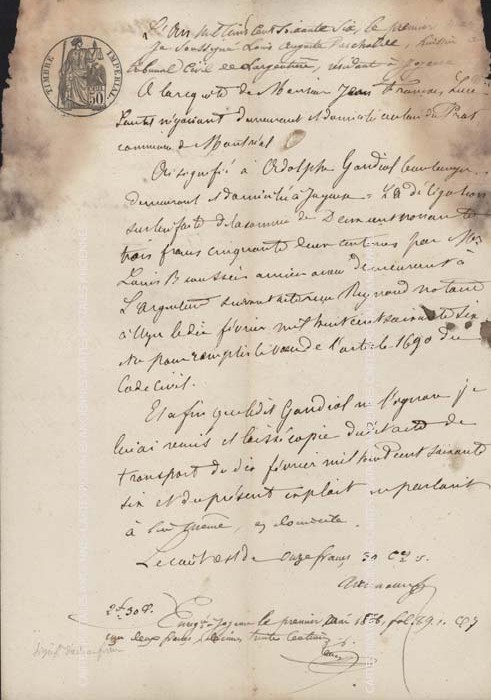 TIMBRE IMPÉRIAL
50
L'An mil huit cent soixante Six, le premier
je soussigné Louis Auguste huissier
tribunal Civil de Largentière, résidant à Joyeuse
A la requête de Monsieur Jean François
négociant demeurant et domicilié au lieu du Prat
commune de Montréal
Ai signifié à Adolphe Gandiol boulanger
demeurant et domicilié à Joyeuse
sur lui faite de la somme de Deux cent nonante
trois francs cinquante deux centimes par Mr
Louis ancien avoué demeurant à
L'Argentière suivant acte reçu Reynaud notaire
à le dix février mil huit cent soixante six
et ce pour remplir le vœu de l'article 1690 du
Code Civil.
Et afin que ledit Gandiol n'l'ignore je
lui ai remis et laissé copie dudit acte de
transport du dix février mil huit cent soixante
six et du présent exploit en parlant
à lui même, en domicile.
Le coût est de onze francs 30 Ces
2f 30c.
Enrgé à Joyeuse le premier mai 1866, fol. 89
deux francs trente centimes